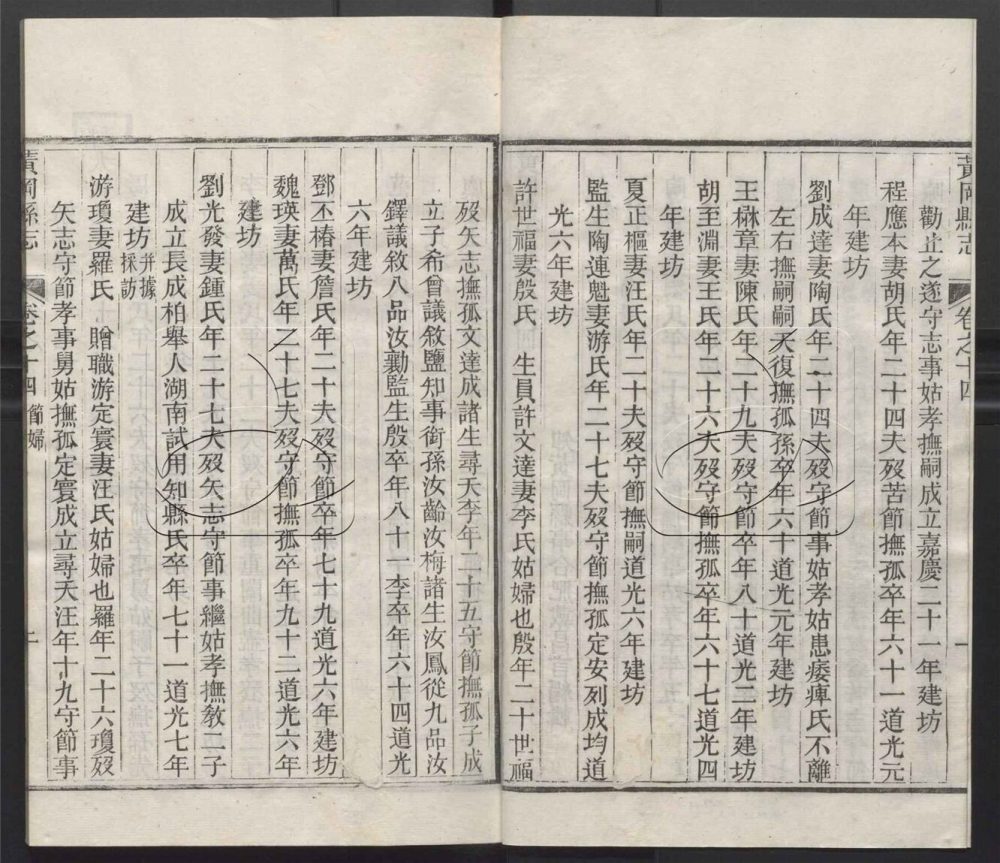 黃岡縣志 卷之十四 一
勸止之遂守志事姑孝撫嗣成立嘉慶二十一年建坊
程應本妻胡氏年二十四夫歿苦節撫孤卒年六十一道光元
年建坊
劉成達妻陶氏年二十四夫歿守節事姑孝姑患痿痺氏不離
左右撫嗣嗣夭復撫孤孫卒年六十道光元年建坊
王楙章妻陳氏年二十九夫歿守節卒年八十道光二年建坊
胡至淵妻王氏年二十六夫歿守節撫孤卒年六十七道光四
年建坊
夏正樞妻汪氏年二十夫歿守節撫嗣道光六年建坊
監生陶連魁妻游氏年二十七夫歿守節撫孤定安列成均道
光六年建坊
許世福妻殷氏 生員許文達妻李氏姑婦也殷年二十世福
歿矢志撫孤文達成諸生尋夭李年二十五守節撫孤子成
立子希曾議敘鹽知事銜孫汝齡汝梅諸生汝鳳從九品汝
鐸議敘八品汝勷監生殷卒年八十一李卒年六十四道光
六年建坊
鄧丕椿妻詹氏年二十夫歿守節卒年七十九道光六年建坊
魏瑛妻萬氏年二十七夫歿守節撫孤卒年九十二道光六年
建坊
劉光發妻鍾氏年二十七夫歿矢志守節事繼姑孝撫教二子
成立長成柏舉人湖南試用知縣氏卒年七十一道光七年
建坊并據採訪
游瓊妻羅氏 贈職游定寰妻汪氏姑婦也羅年二十六瓊歿
矢志守節孝事舅姑撫孤定寰成立尋夭汪年十九守節事
黃岡縣志 卷之十四 節婦 二